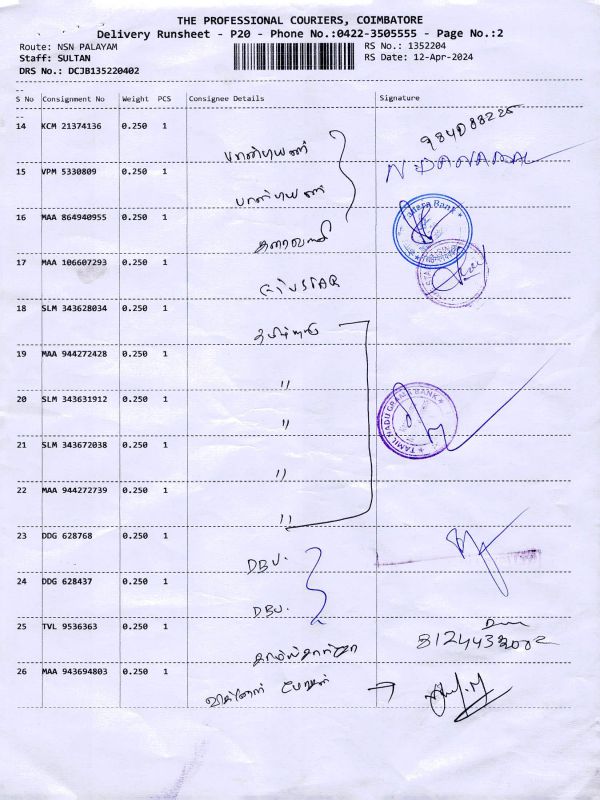 THE PROFESSIONAL COURIERS, COIMBATORE
Delivery Runsheet - P20 - Phone No.:0422-3505555 - Page No.:2
Route: NSN PALAYAM
Staff: SULTAN
DRS No.: DCJB135220402
RS No.: 1352204
RS Date: 12-Apr-2024
S No Consignment No Weight PCS Consignee Details Signature
14 KCM 21374136 0.250 1
15 VPM 5330809 0.250 1
16 MAA 864940955 0.250 1
17 MAA 106607293 0.250 1
18 SLM 343628034 0.250 1
19 MAA 944272428 0.250 1 "
20 SLM 343631912 0.250 1 "
TAMIL NADU GRAMA BANK
21 SLM 343672038 0.250 1 "
22 MAA 944272739 0.250 1 "
23 DDG 628768 0.250 1
24 DDG 628437 0.250 1
25 TVL 9536363 0.250 1
26 MAA 943694803 0.250 1